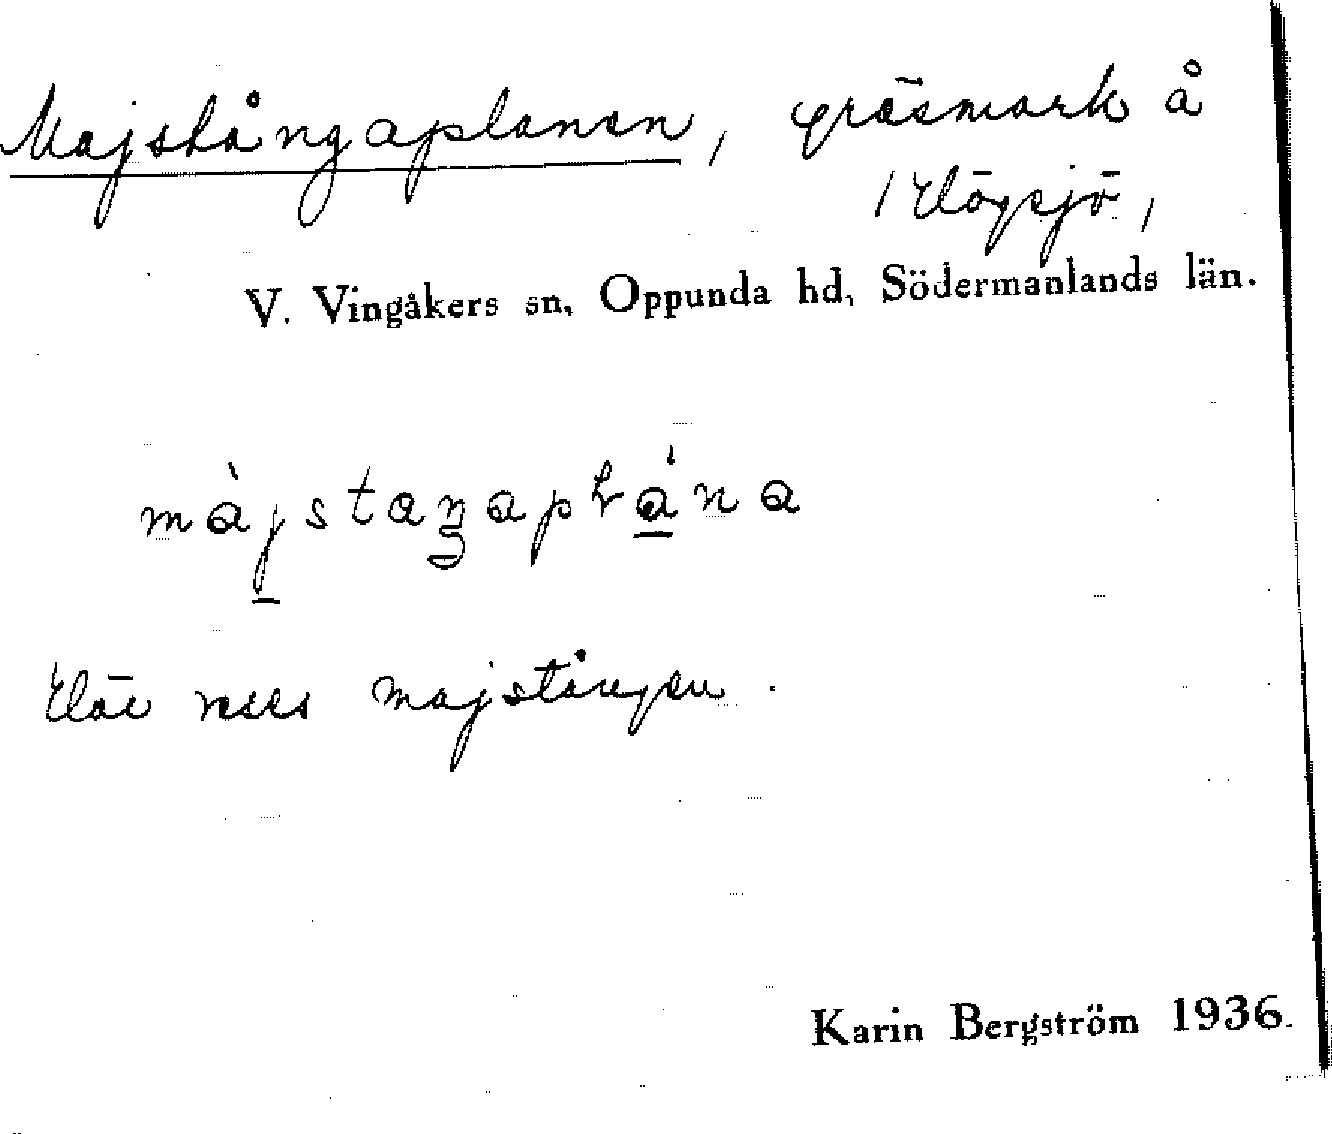 Majstångaplanen, gräsmark å
/ Högsjö,
V. Vingåkers sn, Oppunda hd, Södermanlands län.
Här reses majstången.
Karin Bergström 1936.